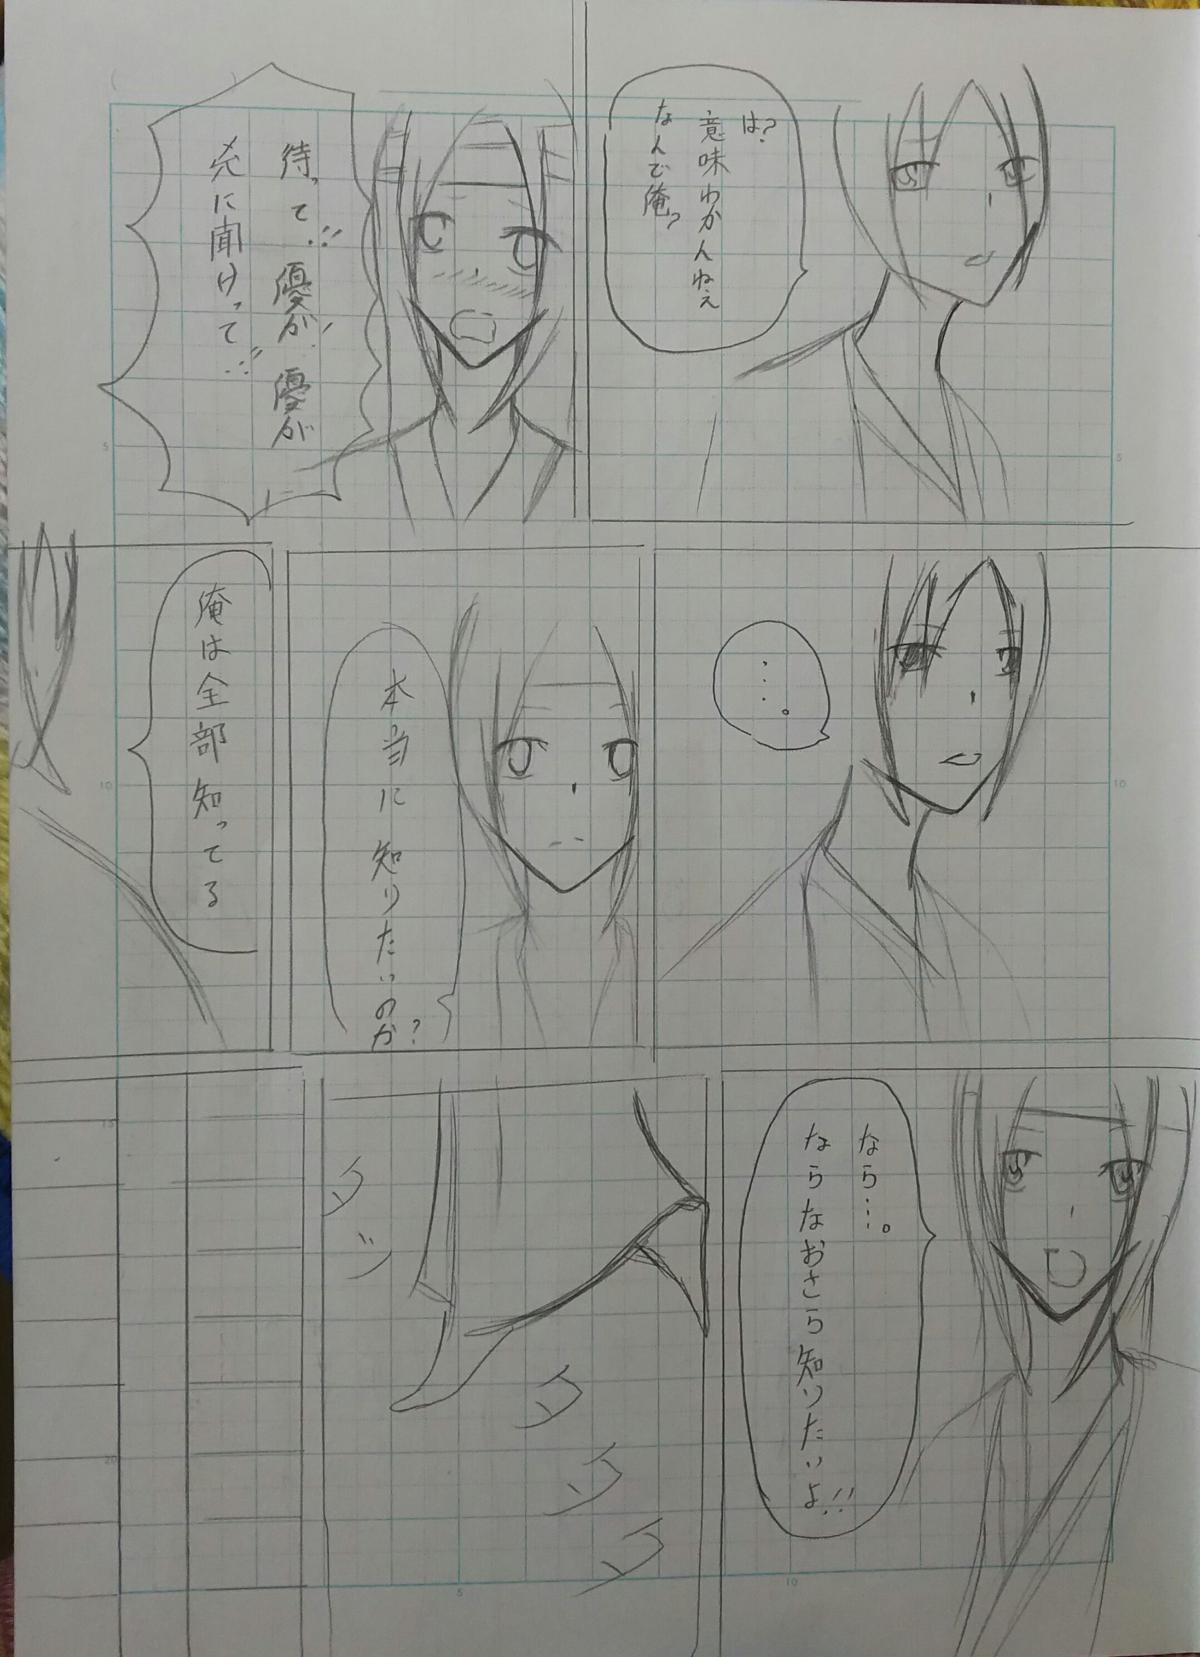 は?
意味わかんねえ
なんで俺?
待って!!優が!優が
光に聞けって!!
....。
本当に知りたいのか?
俺は全部知ってる
なら...。
ならなおさら知りたいよ!!
タッ
タ
タ
タ
5
5
10
10
15
20
5
10